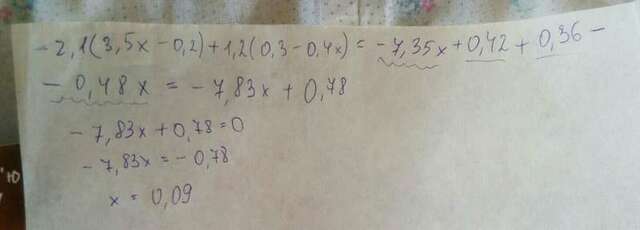 - 2,1(3,5x - 0,2) + 1,2(0,3 - 0,4x) = - 7,35x + 0,42 + 0,36 -
- 0,48x = - 7,83x + 0,78
- 7,83x + 0,78 = 0
- 7,83x = - 0,78
x = 0,09